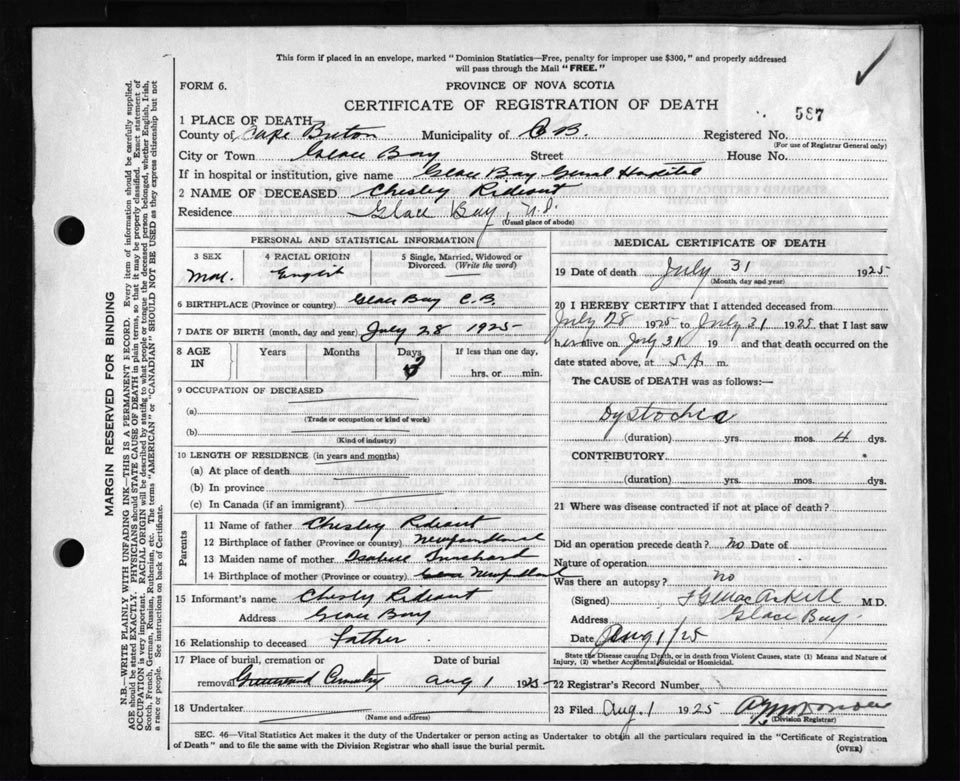 This form if placed in an envelope, marked "Dominion Statistics—Free, penalty for improper use $300," and properly addressed
will pass through the Mail "FREE."
FORM 6.
PROVINCE OF NOVA SCOTIA
CERTIFICATE OF REGISTRATION OF DEATH
587
1 PLACE OF DEATH
County of Cape Breton Municipality of C B. Registered No.
(For use of Registrar General only)
City or Town Glace Bay Street House No.
If in hospital or institution, give name Glace Bay General Hospital
2 NAME OF DECEASED Chesley Rideout
Residence Glace Bay, N.S.
(Usual place of abode)
PERSONAL AND STATISTICAL INFORMATION
3 SEX 4 RACIAL ORIGIN 5 Single, Married, Widowed or
Divorced. (Write the word)
Mal. English
6 BIRTHPLACE (Province or country) Glace Bay C.B.
7 DATE OF BIRTH (month, day and year) July 28 1925
8 AGE IN Years Months Days If less than one day,
3 hrs. or min.
9 OCCUPATION OF DECEASED
(a)
(Trade or occupation or kind of work)
(b)
(Kind of industry)
10 LENGTH OF RESIDENCE (in years and months)
(a) At place of death
(b) In province
(c) In Canada (if an immigrant)
Parents
11 Name of father Chesley Rideout
12 Birthplace of father (Province or country) Newfoundland
13 Maiden name of mother
14 Birthplace of mother (Province or country) Newfoundland
15 Informant's name Chesley Rideout
Address Glace Bay
16 Relationship to deceased Father
17 Place of burial, cremation or Date of burial
removal Greenwood Cemetery Aug 1 1925
18 Undertaker
(Name and address)
MEDICAL CERTIFICATE OF DEATH
19 Date of death July 31 1925
(Month, day and year)
20 I HEREBY CERTIFY that I attended deceased from
July 28 1925 to July 31 1925, that I last saw
him alive on July 31 19 and that death occurred on the
date stated above, at 5 A. m.
The CAUSE OF DEATH was as follows:—
Dystochia
(duration) yrs. mos. 4 dys.
CONTRIBUTORY
(duration) yrs. mos. dys.
21 Where was disease contracted if not at place of death?
Did an operation precede death? no Date of
Nature of operation
Was there an autopsy? no
(Signed) M.D.
Address Glace Bay.
Date Aug 1/25
State the Disease causing Death, or in death from Violent Causes, state (1) Means and Nature of
Injury, (2) whether Accidental, Suicidal or Homicidal.
22 Registrar's Record Number
23 Filed Aug. 1 1925
(Division Registrar)
SEC. 46—Vital Statistics Act makes it the duty of the Undertaker or person acting as Undertaker to obtain all the particulars required in the "Certificate of Registration
of Death" and to file the same with the Division Registrar who shall issue the burial permit.
(OVER)
MARGIN RESERVED FOR BINDING
N.B.—WRITE PLAINLY WITH UNFADING INK—THIS IS A PERMANENT RECORD. Every item of information should be carefully supplied.
AGE should be stated EXACTLY. PHYSICIANS should STATE CAUSE OF DEATH in plain terms, so that it may be properly classified. Exact statement of
OCCUPATION is very important. RACIAL ORIGIN will be described by stating to what people or tongue the deceased person belonged, whether English, Irish,
Scotch, French, German, Russian, Ruthenian, etc. The terms "AMERICAN" or "CANADIAN" SHOULD NOT BE USED as they express citizenship but not
a race or people. See instructions on back of Certificate.